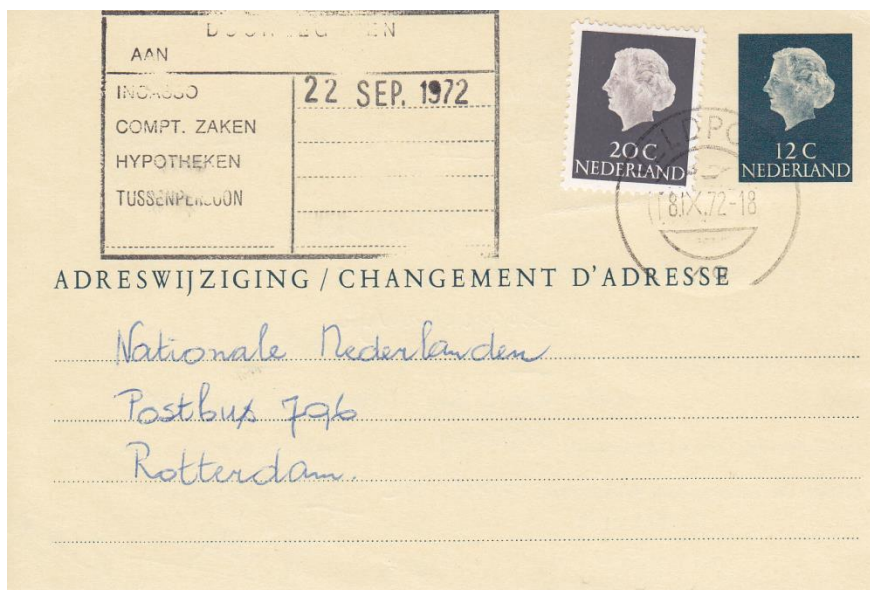 AAN
INCASSO
COMPT. ZAKEN
HYPOTHEKEN
TUSSENPERSOON
22 SEP. 1972
20 C
NEDERLAND
12 C
NEDERLAND
18.IX.72-18
ADRESWIJZIGING / CHANGEMENT D'ADRESSE
Nationale Nederlanden
Postbus 796
Rotterdam.